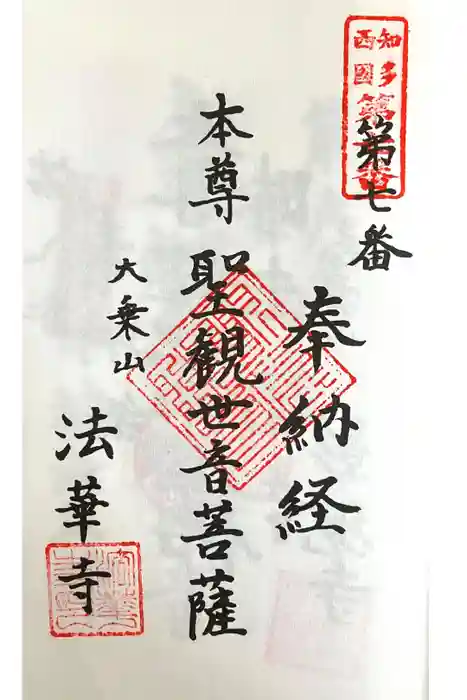 知多
西國
第七番
奉納経
本尊 聖観世音菩薩
大乗山
法華寺